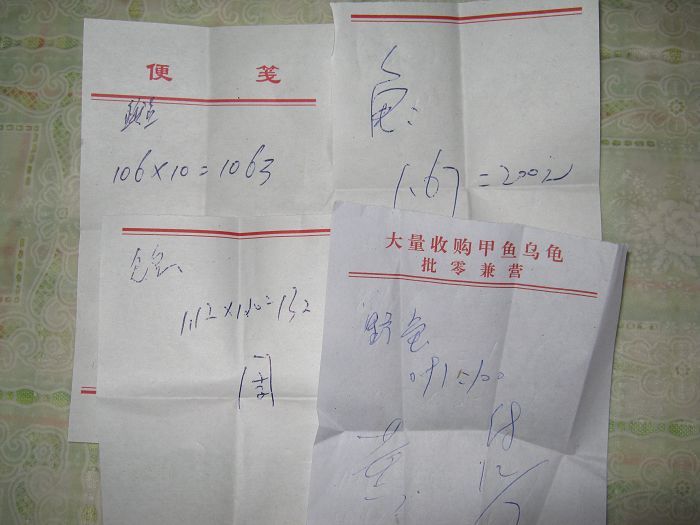 便 笺
106×10=1063
龟:
1.67=200元
112×1.20=132
周
大量收购甲鱼乌龟
批零兼营
野龟
0.91=100
黄
18
12/7